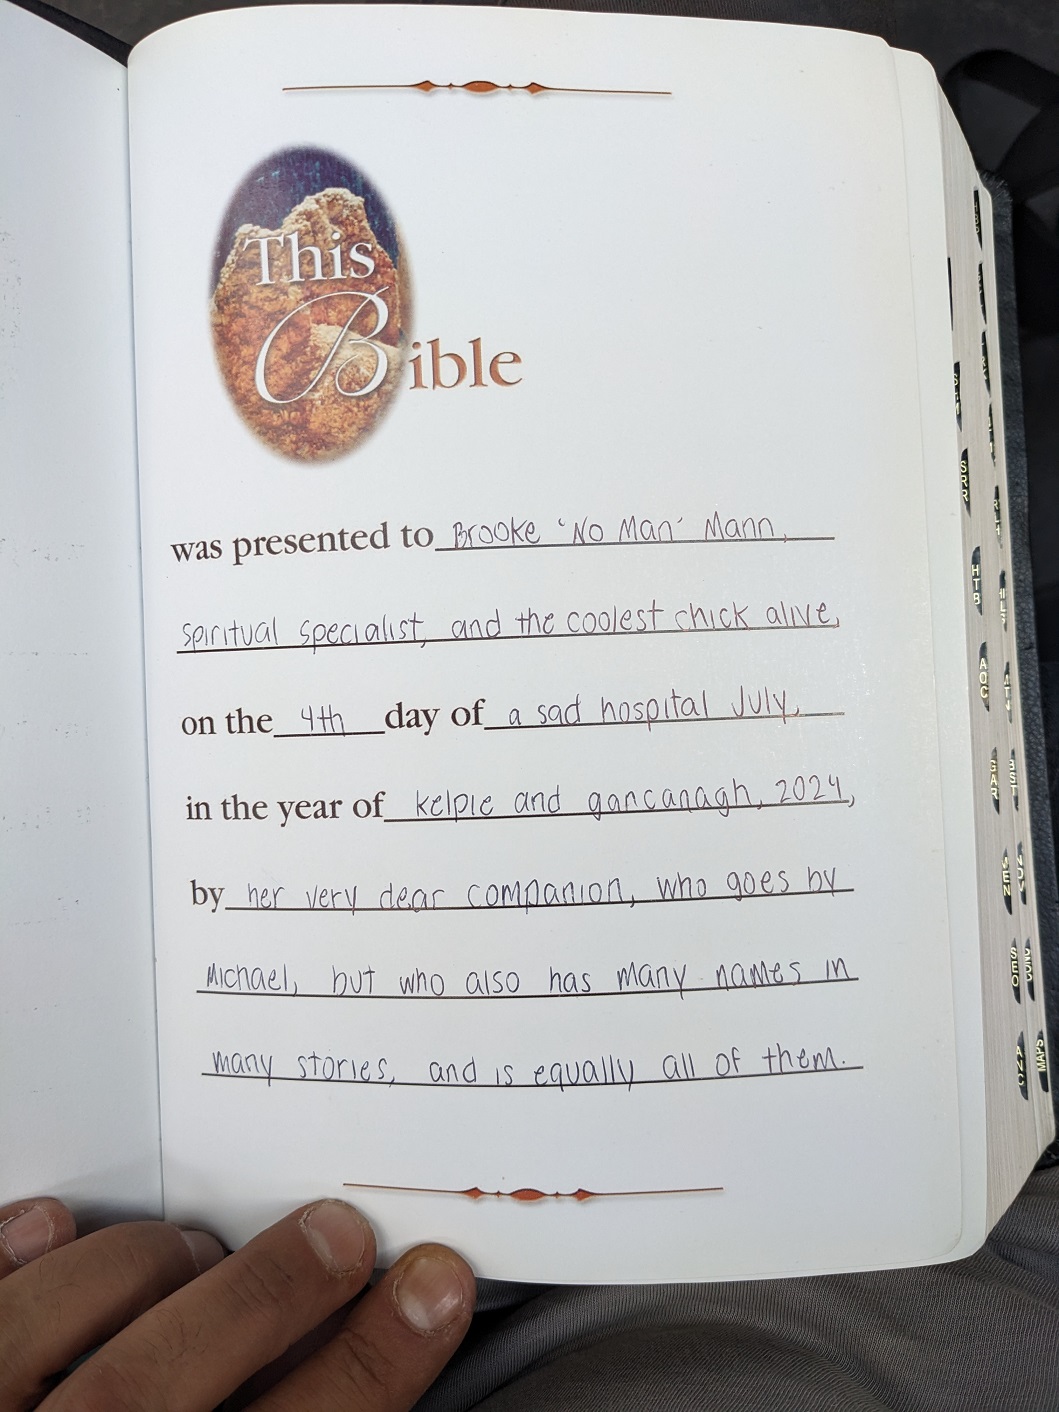 This
Bible
was presented to Brooke 'No Man' Mann,
spiritual specialist, and the coolest chick alive,
on the 4th day of a sad hospital July,
in the year of kelpie and gancanagh, 2024,
by her very dear companion, who goes by
Michael, but who also has many names in
many stories, and is equally all of them.
MAPS